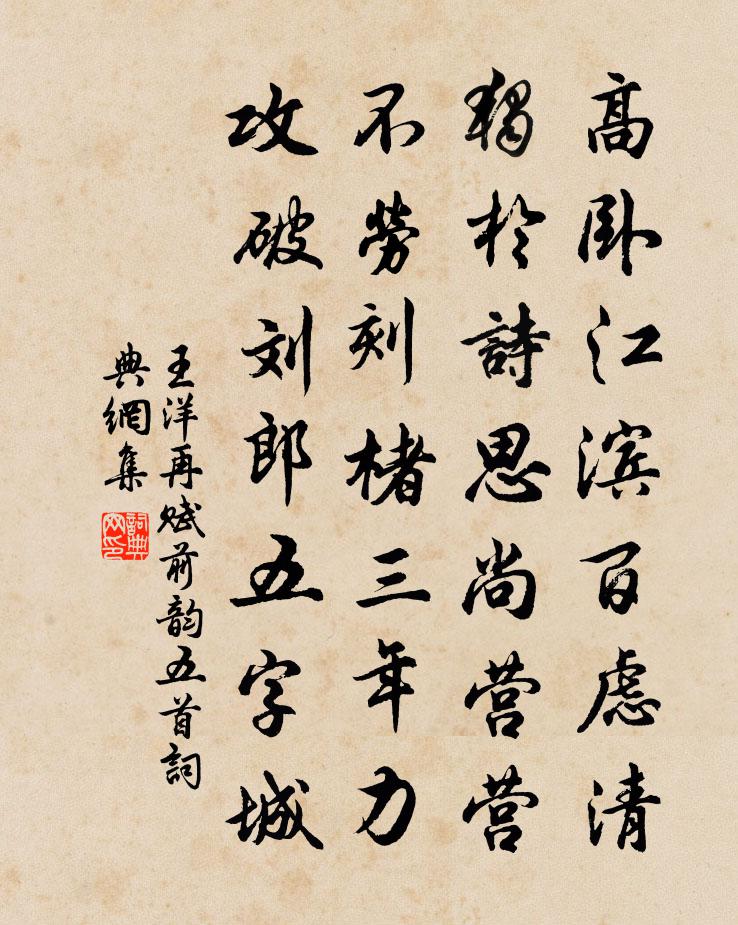 高卧江滨百虑清
独於詩思尚营营
不勞刻楮三年力
攻破刘郎五字城
王洋再赋前韵五首詞
典網集
詞典网印